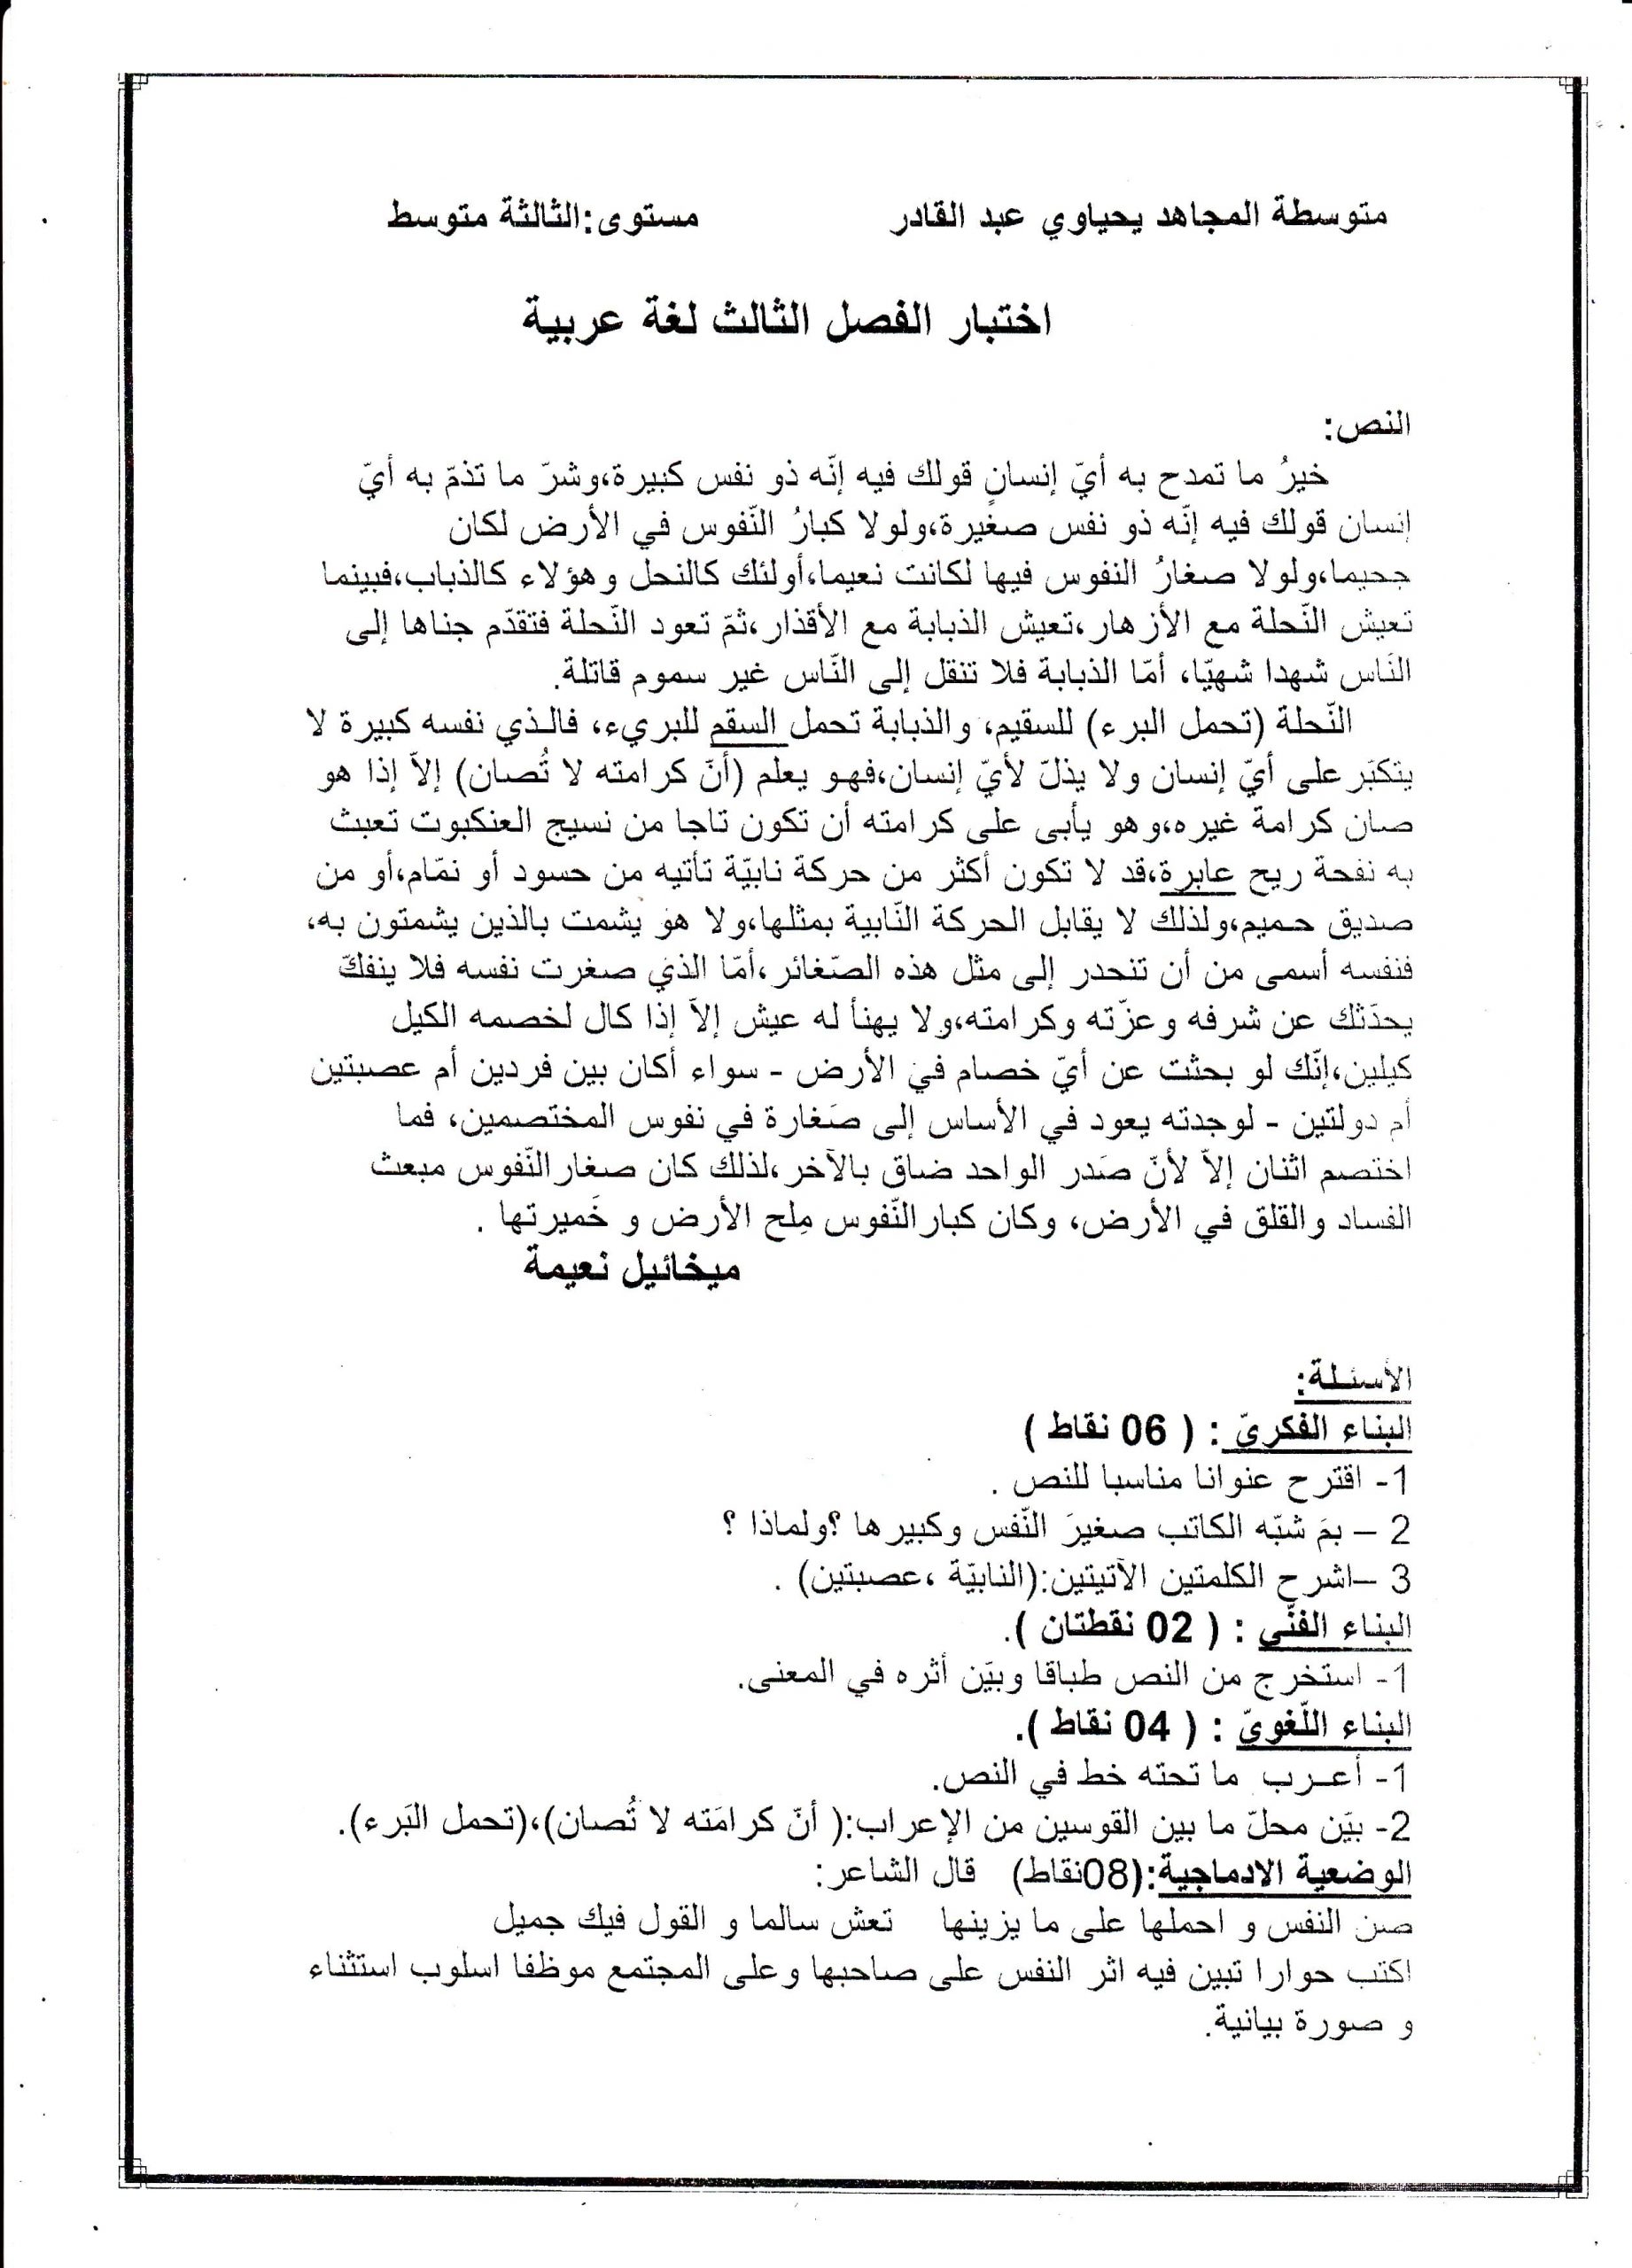 متوسطة المجاهد يحياوي عبد القادر مستوى:الثالثة متوسط
اختبار الفصل الثالث لغة عربية
النص:
خيرُ ما تمدح به أيّ إنسانٍ قولك فيه إنّه ذو نفس كبيرة،وشرّ ما تذمّ به أيّ
إنسان قولك فيه إنّه ذو نفس صغيرة،ولولا كبارُ النّفوس في الأرض لكان
جحيما،ولولا صغارُ النفوس فيها لكانت نعيما،أولئك كالنحل وهؤلاء كالذباب،فبينما
تعيش النّحلة مع الأزهار،تعيش الذبابة مع الأقذار،ثمّ تعود النّحلة فتقدّم جناها إلى
النّاس شهدا شهيّا، أمّا الذبابة فلا تنقل إلى النّاس غير سموم قاتلة.
النّحلة (تحمل البرء) للسقيم، والذبابة تحمل السقم للبريء، فالـذي نفسه كبيرة لا
يتكبّر على أيّ إنسان ولا يذلّ لأيّ إنسان،فهـو يعلم (أنّ كرامته لا تُصان) إلاّ إذا هو
صان كرامة غيره،وهو يأبى على كرامته أن تكون تاجا من نسيج العنكبوت تعبث
به نفحة ريح عابرة،قد لا تكون أكثر من حركة نابيّة تأتيه من حسود أو نمّام،أو من
صديق حميم،ولذلك لا يقابل الحركة النّابية بمثلها،ولا هو يشمت بالذين يشمتون به،
فنفسه أسمى من أن تنحدر إلى مثل هذه الصّغائر،أمّا الذي صغرت نفسه فلا ينفكّ
يحدّثك عن شرفه وعزّته وكرامته،ولا يهنأ له عيش إلاّ إذا كال لخصمه الكيل
كيلين،إنّك لو بحثت عن أيّ خصام في الأرض - سواء أكان بين فردين أم عصبتين
أم دولتين - لوجدته يعود في الأساس إلى صَغارة في نفوس المختصمين، فما
اختصم اثنان إلاّ لأنّ صَدر الواحد ضاق بالآخر،لذلك كان صغار النّفوس مبعث
الفساد والقلق في الأرض، وكان كبار النّفوس مِلح الأرض و خَميرتها .
ميخائيل نعيمة
الأسئـلة:
البناء الفكريّ : ( 06 نقاط )
1- اقترح عنوانا مناسبا للنص .
2 – بمَ شبّه الكاتب صغيرَ النّفس وكبيرها ؟ولماذا ؟
3 –اشرح الكلمتين الآتيتين:(النابيّة ،عصبتين) .
البناء الفنّي : ( 02 نقطتان ).
1- استخرج من النص طباقا وبيّن أثره في المعنى.
البناء اللّغويّ : ( 04 نقاط ).
1- أعـرب ما تحته خط في النص.
2- بيّن محلّ ما بين القوسين من الإعراب:( أنّ كرامَته لا تُصان)،(تحمل البَرء).
الوضعية الادماجية:(08نقاط) قال الشاعر:
صن النفس و احملها على ما يزينها تعش سالما و القول فيك جميل
اكتب حوارا تبين فيه اثر النفس على صاحبها وعلى المجتمع موظفا اسلوب استثناء
و صورة بيانية.